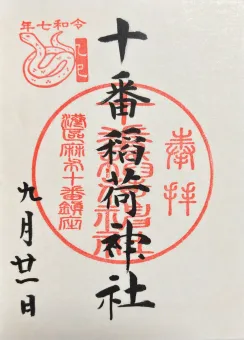 奉拝
十番稲荷神社
港區麻布十番鎮座
令和七年
乙巳
九月廿一日